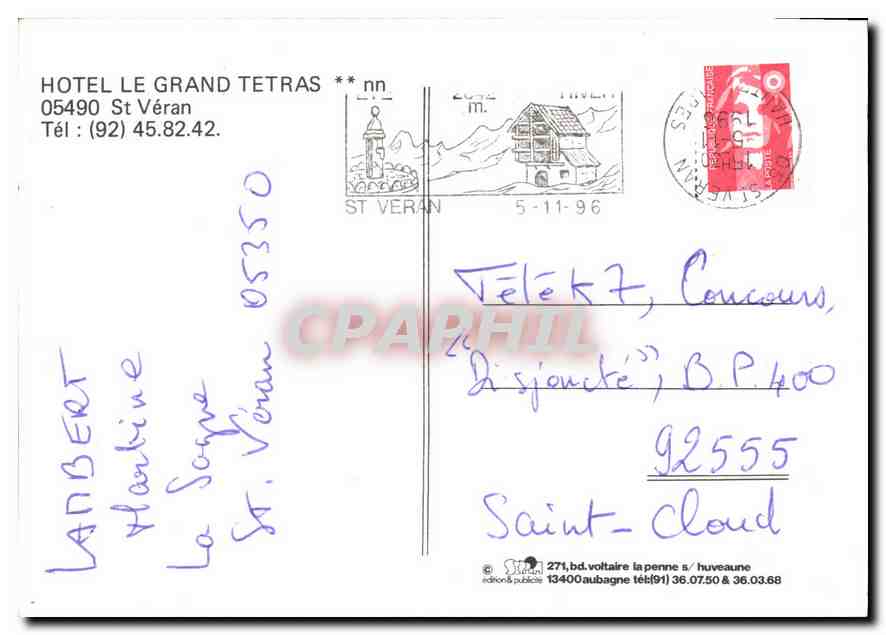 HOTEL LE GRAND TETRAS ** nn
05490 St Véran
Tél : (92) 45.82.42.
ETE 2042 m. HIVER
ST VERAN 5-11-96
REPUBLIQUE FRANÇAISE
LA POSTE
ST VERAN
CPAPHIL
LAMBERT
Martine
St. Véran 05350
Télé K7, Concours,
"Disjoncté", B.P. 400
92555
Saint-Cloud
© édition & publicité
271, bd. voltaire la penne s/ huveaune
13400 aubagne tél:(91) 36.07.50 & 36.03.68